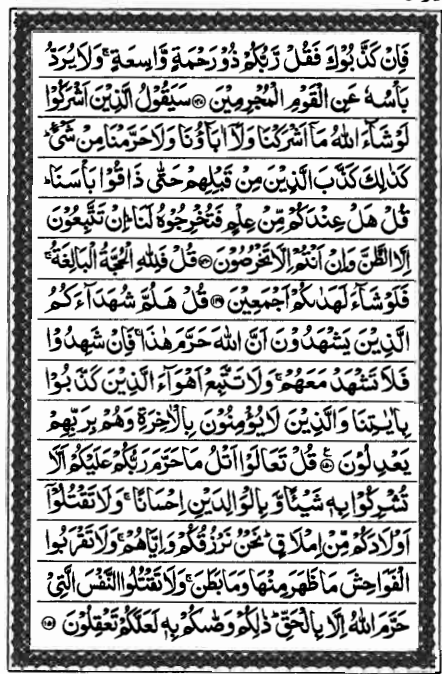 فَاِنْ كَذَّبُوْكَ فَقُلْ رَّبُّكُمْ ذُوْ رَحْمَةٍ وَّاسِعَةٍ ۚ وَلَا يُرَدُّ
بَاْسُهٗ عَنِ الْقَوْمِ الْمُجْرِمِيْنَ ﴿۱۴۷﴾ سَيَقُوْلُ الَّذِيْنَ اَشْرَكُوْا
لَوْ شَآءَ اللّٰهُ مَاۤ اَشْرَكْنَا وَلَاۤ اٰبَآؤُنَا وَلَا حَرَّمْنَا مِنْ شَیْءٍ ؕ
كَذٰلِكَ كَذَّبَ الَّذِيْنَ مِنْ قَبْلِهِمْ حَتّٰى ذَاقُوْا بَاْسَنَا ؕ
قُلْ هَلْ عِنْدَكُمْ مِّنْ عِلْمٍ فَتُخْرِجُوْهُ لَنَا ؕ اِنْ تَتَّبِعُوْنَ
اِلَّا الظَّنَّ وَاِنْ اَنْتُمْ اِلَّا تَخْرُصُوْنَ ﴿۱۴۸﴾ قُلْ فَلِلّٰهِ الْحُجَّةُ الْبَالِغَةُ ۚ
فَلَوْ شَآءَ لَهَدٰىكُمْ اَجْمَعِيْنَ ﴿۱۴۹﴾ قُلْ هَلُمَّ شُهَدَآءَكُمُ
الَّذِيْنَ يَشْهَدُوْنَ اَنَّ اللّٰهَ حَرَّمَ هٰذَا ۚ فَاِنْ شَهِدُوْا
فَلَا تَشْهَدْ مَعَهُمْ ۚ وَلَا تَتَّبِعْ اَهْوَآءَ الَّذِيْنَ كَذَّبُوْا
بِاٰيٰتِنَا وَالَّذِيْنَ لَا يُؤْمِنُوْنَ بِالْاٰخِرَةِ وَهُمْ بِرَبِّهِمْ
يَعْدِلُوْنَ ﴿۱۵۰﴾ قُلْ تَعَالَوْا اَتْلُ مَا حَرَّمَ رَبُّكُمْ عَلَيْكُمْ اَلَّا
تُشْرِكُوْا بِهٖ شَيْئًا وَّبِالْوَالِدَيْنِ اِحْسَانًا ۚ وَلَا تَقْتُلُوْۤا
اَوْلَادَكُمْ مِّنْ اِمْلَاقٍ ؕ نَحْنُ نَرْزُقُكُمْ وَاِيَّاهُمْ ۚ وَلَا تَقْرَبُوا
الْفَوَاحِشَ مَا ظَهَرَ مِنْهَا وَمَا بَطَنَ ۚ وَلَا تَقْتُلُوا النَّفْسَ الَّتِیْ
حَرَّمَ اللّٰهُ اِلَّا بِالْحَقِّ ؕ ذٰلِكُمْ وَصّٰىكُمْ بِهٖ لَعَلَّكُمْ تَعْقِلُوْنَ ﴿۱۵۱﴾